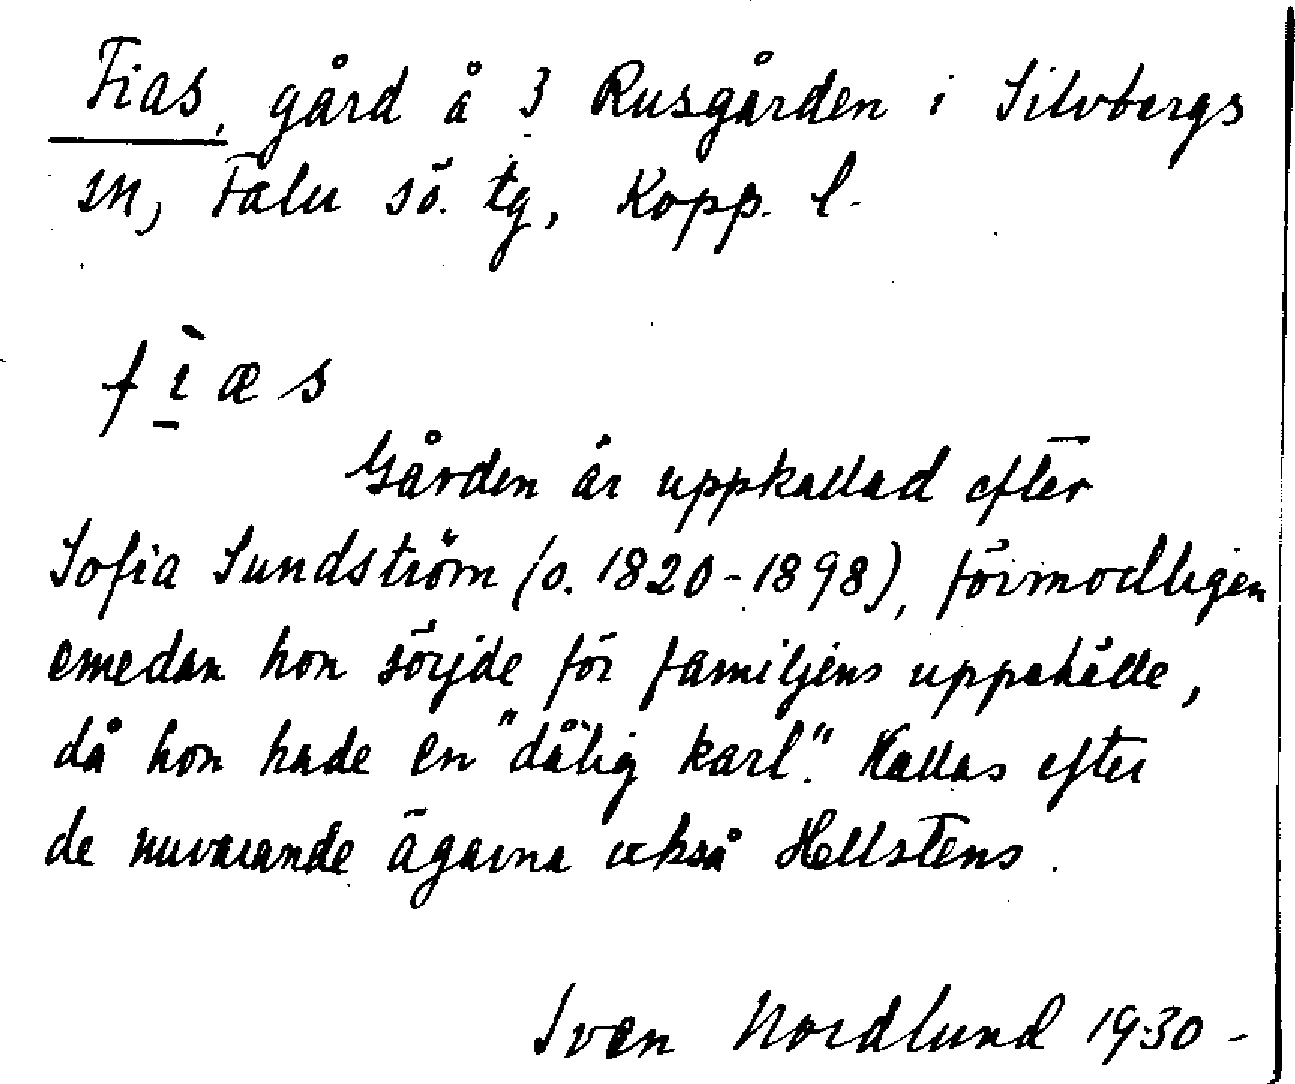 Fias, gård å 3 Rusgården i Silvbergs
sn, Falu sö. tg, Kopp. l.
f ì æ s
Gården är uppkallad efter
Sofia Sundström (o. 1820-1898), förmodligen
emedan hon sörjde för familjens uppehälle,
då hon hade en "dålig karl". Kallas efter
de nuvarande ägarna också Hellstens.
Sven Nordlund 1930-